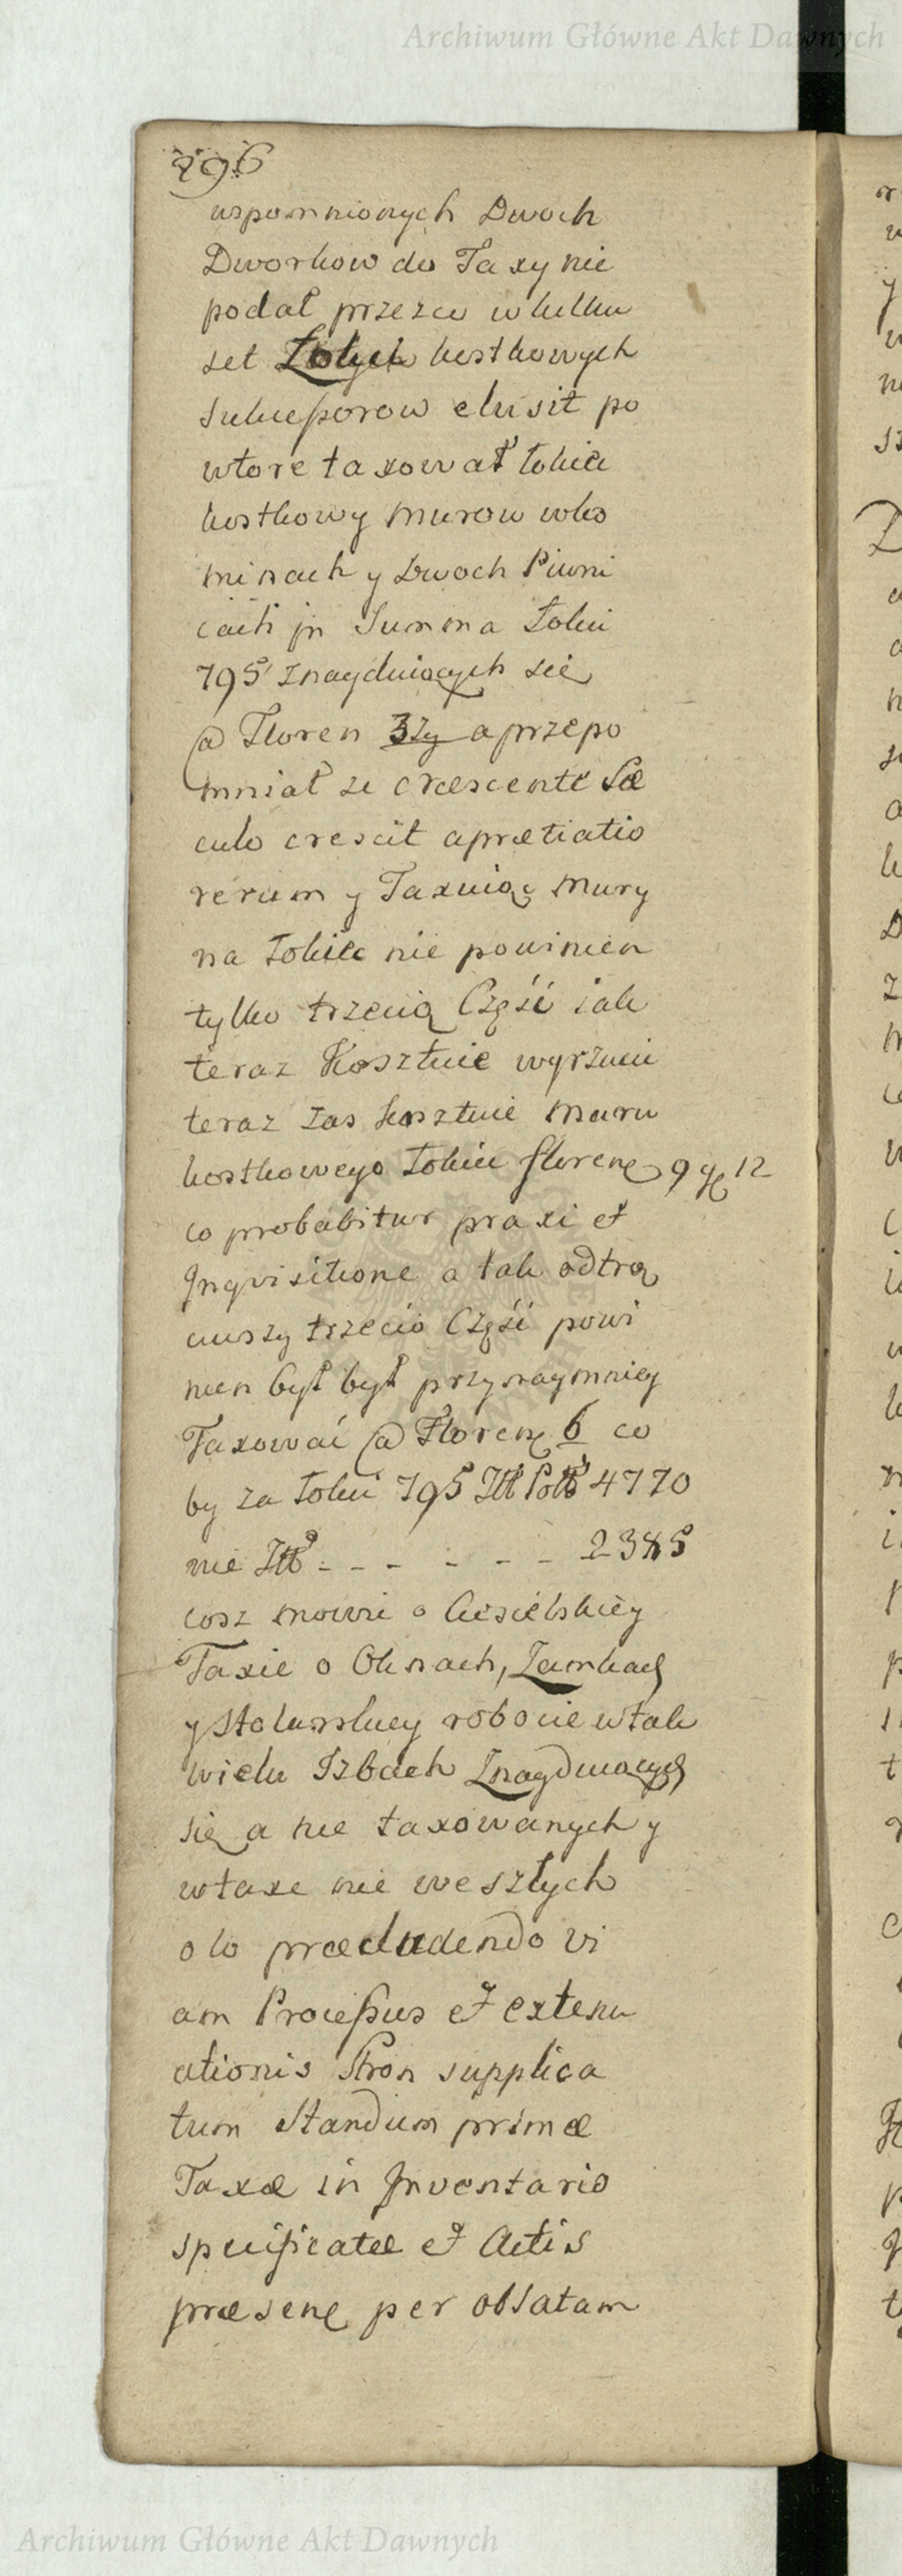 Archiwum Główne Akt Dawnych
296
wspomnionych Dwoch
Dworkow do Taxy nie
podał przezco wkilku
set Łokych kostkowych
Sukcessorow elusit po
wtore taxował łokieć
kostkowy murow wko
minach y Dwoch Piwni
cach jn Summa Łokci
795 Znayduiących się
@ Floren 3Zy a przepo
mniał ze crescente Sæ
culo crescit aprætiatio
rerum y Taxuiąc mury
na Łokiec nie powinien
tylko trzecią Część iak
teraz Kosztuie wyrzucic
teraz zas kosztuie muru
kostkowego Łokiec floren 9 gr 12
co probabitur praxi et
Jnqvisitione a tak odtrą
ciwszy trzecio Część powi
nien był był przynaymniey
Taxować @ Floren 6 co
by za Łokci 795 Złł Polł 4770
nie Złł - - - - - - 2385
cosz mowic o Ciesielskiey
Taxie o Oknach, Zamkach
y Stolarskiey robocie wtak
wielu Izbach Znayduiących
się a nie taxowanych y
wtaxe nie weszłych
o to præcludendo vi
am Processus et extenu
ationis Stron supplica
tum Standum primæ
Taxæ in Jnventario
specificatæ et Actis
præsen per oblatam
Archiwum Główne Akt Dawnych